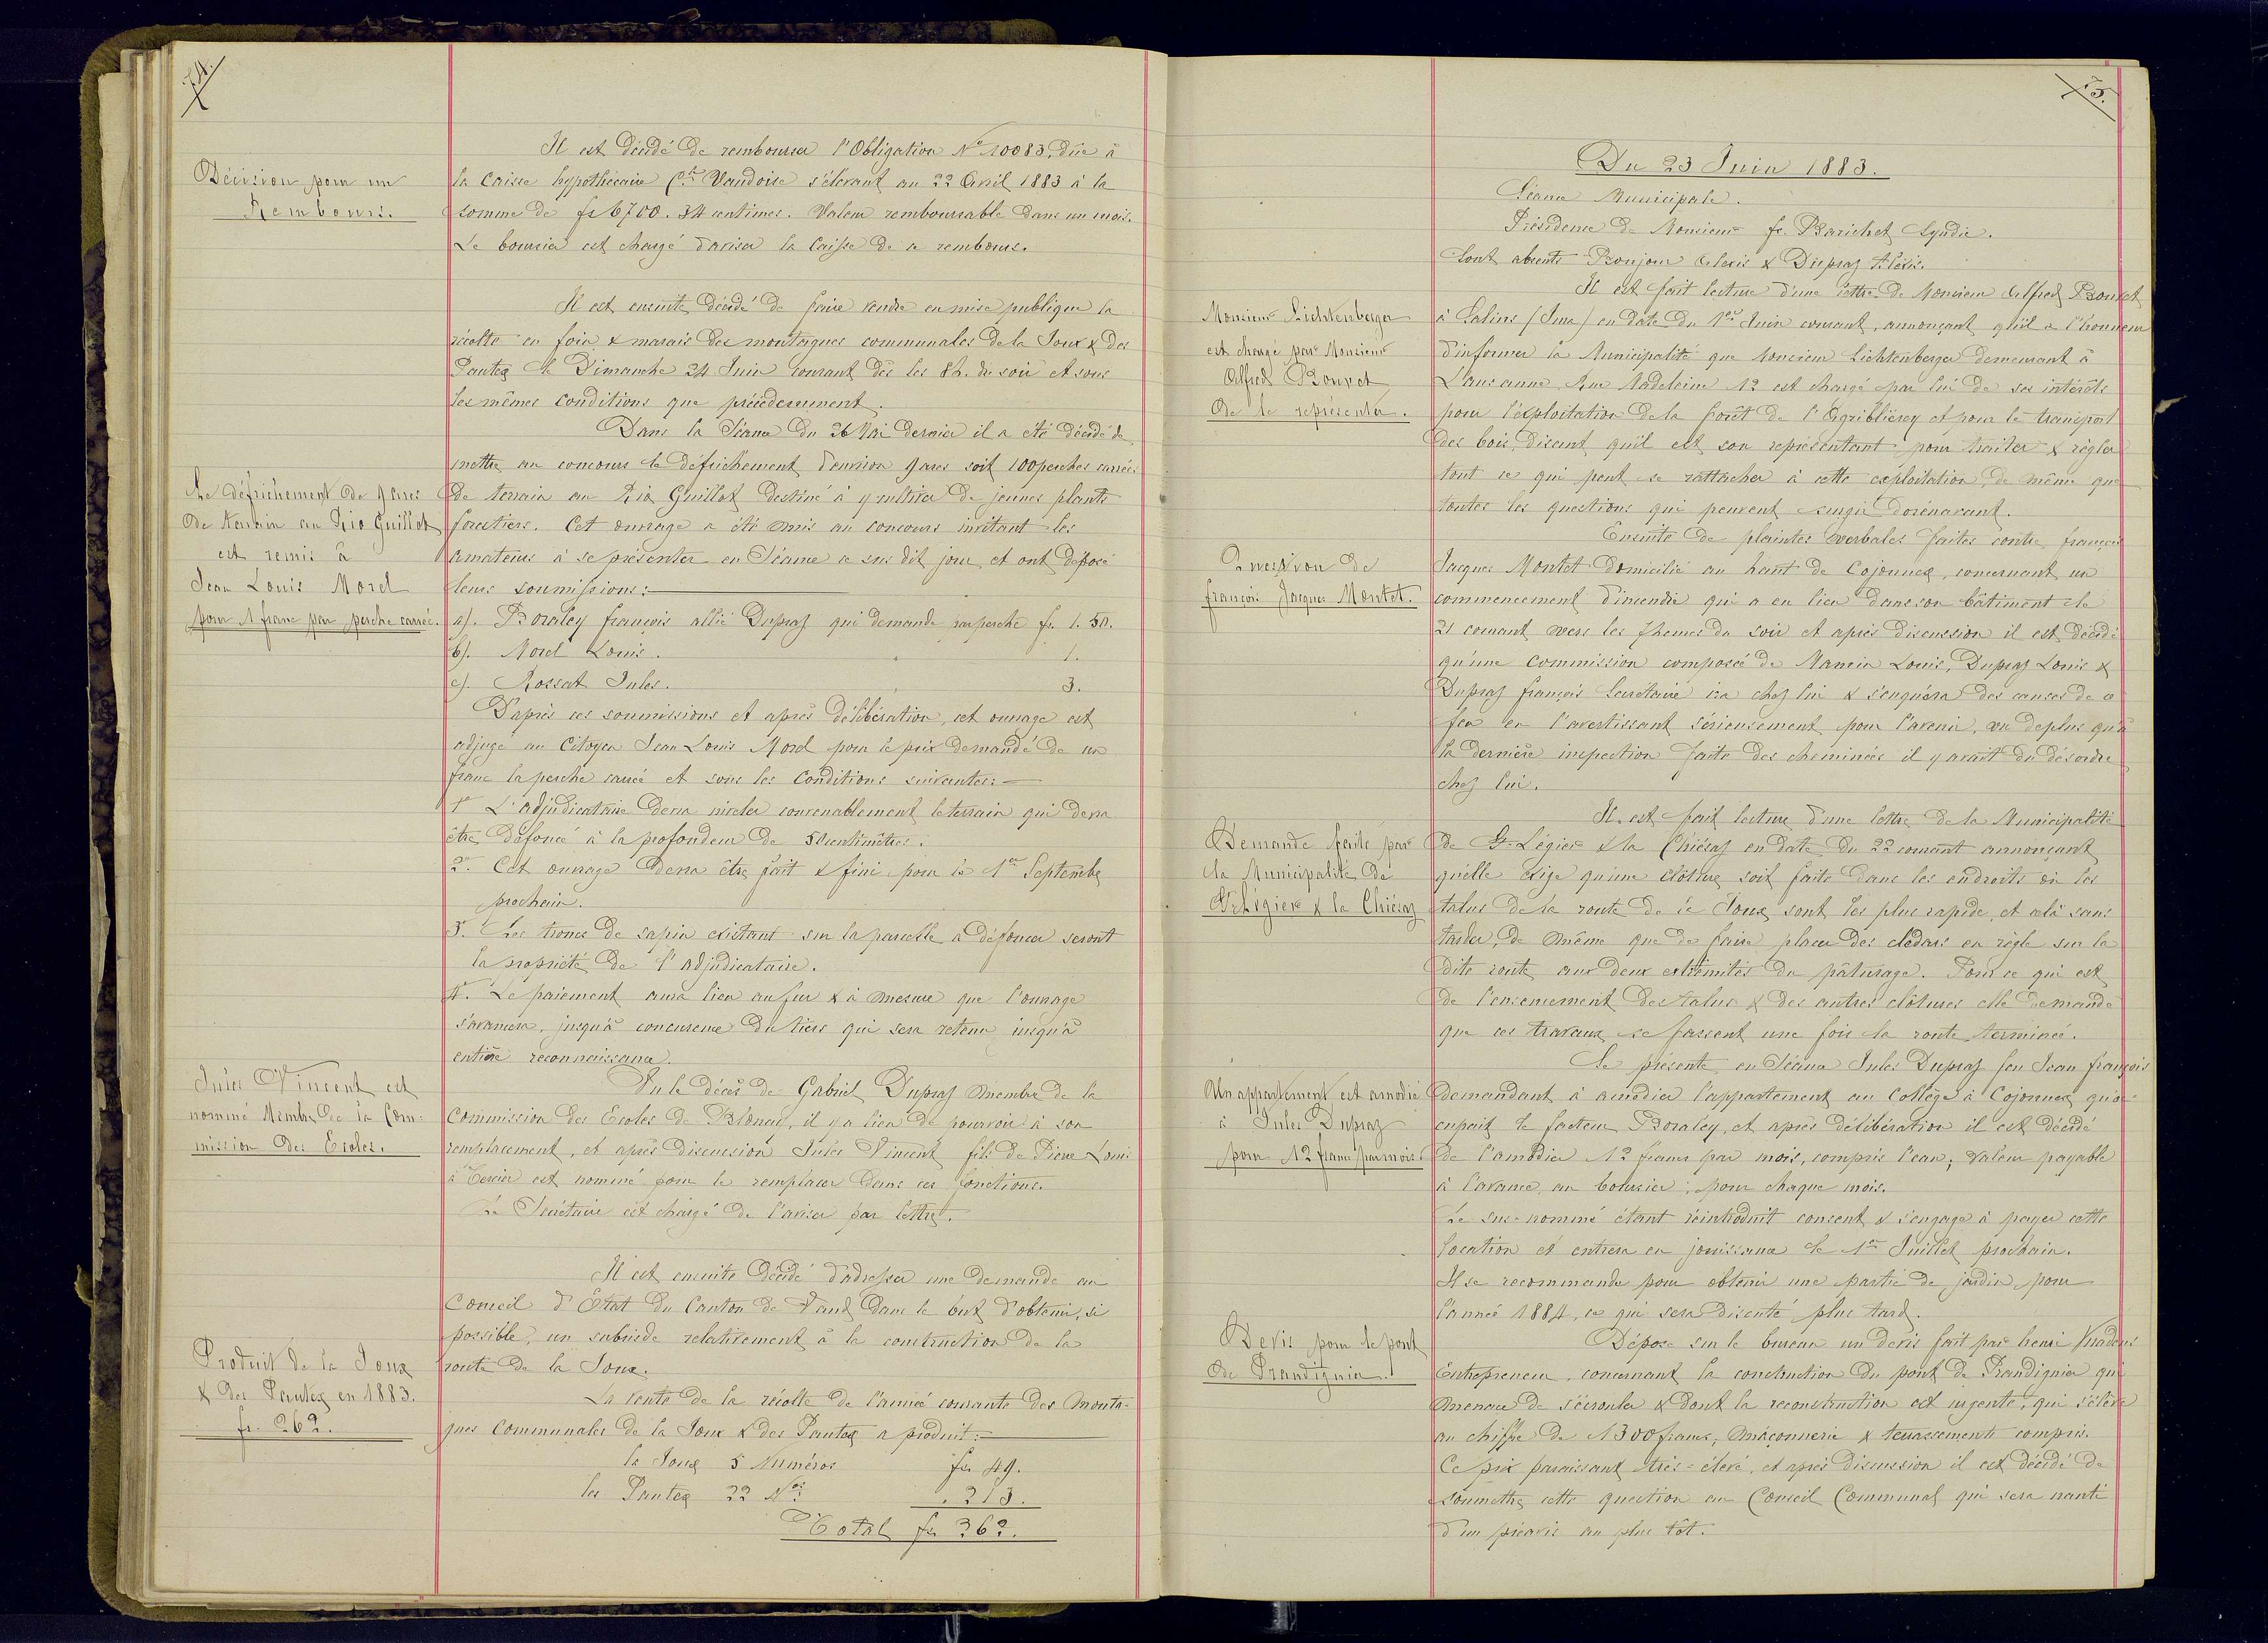 74.
Décision pour un
Rembours.
Il est décidé de rembourser l'Obligation No 10083, dûe à
la Caisse hypothécaire Cle Vaudoise s'élevant au 22 Avril 1883 à la
somme de fr 6700. 34 centimes. Valeur remboursable dans un mois.
Le boursier est chargé d'aviser la Caisse de ce rembours.
Il est ensuite décidé de faire vendre en mise publique la
récolte en foin & marais des montagnes communales de la Joux & des
Pautex le Dimanche 24 Juin courant dès les 8 h. du soir et sous
les mêmes conditions que précédemment.
Le défrichement de 9 ares
de terrain au Rio Guillot
est remis à
Jean Louis Morel
pour 1 franc par perche carrée.
Dans la Séance du 26 Mai dernier il a été décidé de
mettre au concours le défrichement d'environ 9 ares soit 100 perches carrées
de terrain au Rio Guillot destiné à y cultiver de jeunes plants
forestiers. Cet ouvrage a été mis au concours invitant les
amateurs à se présenter en Séance ce sus dit jour et ont déposé
leurs soumissions:
a). Boraley françois allié Dupraz qui demande par perche fr. 1. 50.
b). Morel Louis. 1.
c). Rossat Jules. 3.
D'après ces soumissions et après délibération, cet ouvrage est
adjugé au Citoyen Jean Louis Morel pour le prix demandé de un
franc la perche carrée et sous les Conditions suivantes:
1o L'adjudicataire devra niveler convenablement le terrain qui devra
être défoncé à la profondeur de 50 centimètres.
2o Cet ouvrage devra être fait & fini pour le 1er Septembre
prochain.
3o. Les troncs de sapin existant sur la parcelle à défoncer seront
la propriété de l'adjudicataire.
4o. Le paiement aura lieu au fur & à mesure que l'ouvrage
s'avancera, jusqu'à concurence du tiers qui sera retenu jusqu'à
entière reconnaissance.
Jules Vincent est
nommé Membre de la Com-
mission des Ecoles.
Vu le décès de Gabriel Dupraz membre de la
Commission des Ecoles de Blonay, il y a lieu de pourvoir à son
remplacement, et après discussion Jules Vincent fils de Pierre Louis
à Tercier est nommé pour le remplacer dans ces fonctions.
Le Secrétaire est chargé de l'aviser par lettre.
Il est ensuite décidé d'adresser une demande au
Conseil d'Etat du Canton de Vaud dans le but d'obtenir, si
possible, un subside relativement à la construction de la
route de la Joux.
Produit de la Joux
& des Pautex en 1883.
fr. 262.
La vente de la récolte de l'année courante des monta-
gnes communales de la Joux & des Pautex a produit:
la Joux 5 Numéros fr. 49.
les Pautex 22 Nos . 213.
Total fr 262.
75.
Du 23 Juin 1883.
Séance Municipale.
Présidence de Monsieur fs. Barichet Syndic.
Sont absents Bonjour Alexis & Dupraz Alexis.
Monsieur Lichtenberger
est chargé par Monsieur
Alfred Bouvet
de le représenter.
Il est fait lecture d'une lettre de Monsieur Alfred Bouvet
à Salins (Jura) en date du 1er Juin courant, annonçant qu'il a l'honneur
d'informer la Municipalité que Monsieur Lichtenberger demeurant à
Lausanne Rue Madeleine 12 est chargé par lui de ses intérêts
pour l'exploitation de la forêt de l'Agriblierey et pour le transport
des bois, disant qu'il est son représentant pour traiter & régler
tout ce qui peut se rattacher à cette exploitation, de même que
toutes les questions qui peuvent surgir dorénavant.
Question de
françois Jacques Montet.
Ensuite de plaintes verbales faites contre françois
Jacques Montet domicilié au haut de Cojonnex, concernant un
commencement d'incendie qui a eu lieu dans son bâtiment le
21 courant vers les 7 heures du soir et après discussion il est décidé
qu'une commission composée de Mamin Louis, Dupraz Louis &
Dupraz françois Secrétaire ira chez lui & s'enquéra des causes de ce
feu en l'avertissant sérieusement pour l'avenir, vu de plus qu'à
la dernière inspection faite des cheminées il y avait du désordre
chez lui.
Demande faite par
la Municipalité de
St Légier & la Chiésaz
Il est fait lecture d'une lettre de la Municipalité
de St Légier & la Chiésaz en date du 22 courant annonçant
qu'elle exige qu'une clôture soit faite dans les endroits où les
talus de la route de la Joux sont les plus rapide, et celà sans
tarder, de même que de faire placer des clédars en règle sur la
dite route aux deux extrémités du pâturage. Pour ce qui est
de l'ensemement des talus & des autres clôtures elle demande
que ces travaux se fassent une fois la route terminée.
Un appartement est amodié
à Jules Dupraz
pour 12 francs par mois.
Se présente en Séance Jules Dupraz feu Jean françois
demandant à amodier l'appartement au Collège à Cojonnex qu'oc-
cupait le facteur Boraley, et après délibération il est décidé
de l'amodier 12 francs par mois, compris l'eau; valeur payable
à l'avance, au boursier, pour chaque mois.
Le sus-nommé étant réintroduit consent & s'engage à payer cette
location et entrera en jouissance le 1er Juillet prochain.
Il se recommande pour obtenir une partie de jardin pour
l'année 1884, ce qui sera discuté plus tard.
Devis pour le pont
de Prandignier.
Dépose sur le bureau un devis fait par henri
Entrepreneur, concernant la construction du pont de Prandignier qui
menace de s'écrouler & dont la reconstruction est urgente, qui s'élève
au chiffre de 1300 francs, maçonnerie & terrassements compris.
Ce prix paraissant très-élevé, et après discussion il est décidé de
soumettre cette question au Conseil Communal qui sera nanti
d'un préavis au plus tôt.